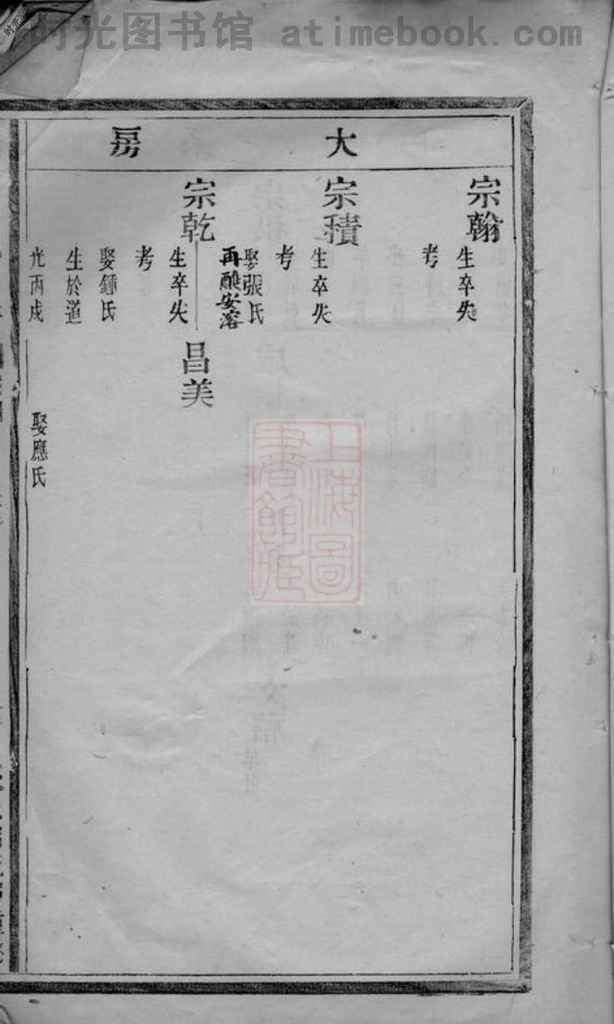 时光图书馆 atimebook.com
大房
宗翰
生卒失
考
宗積
生卒失
考
娶張氏
宗乾
昌美
生卒失
考
娶鍾氏
生於道
光丙戌
娶應氏
上海圖
書館藏